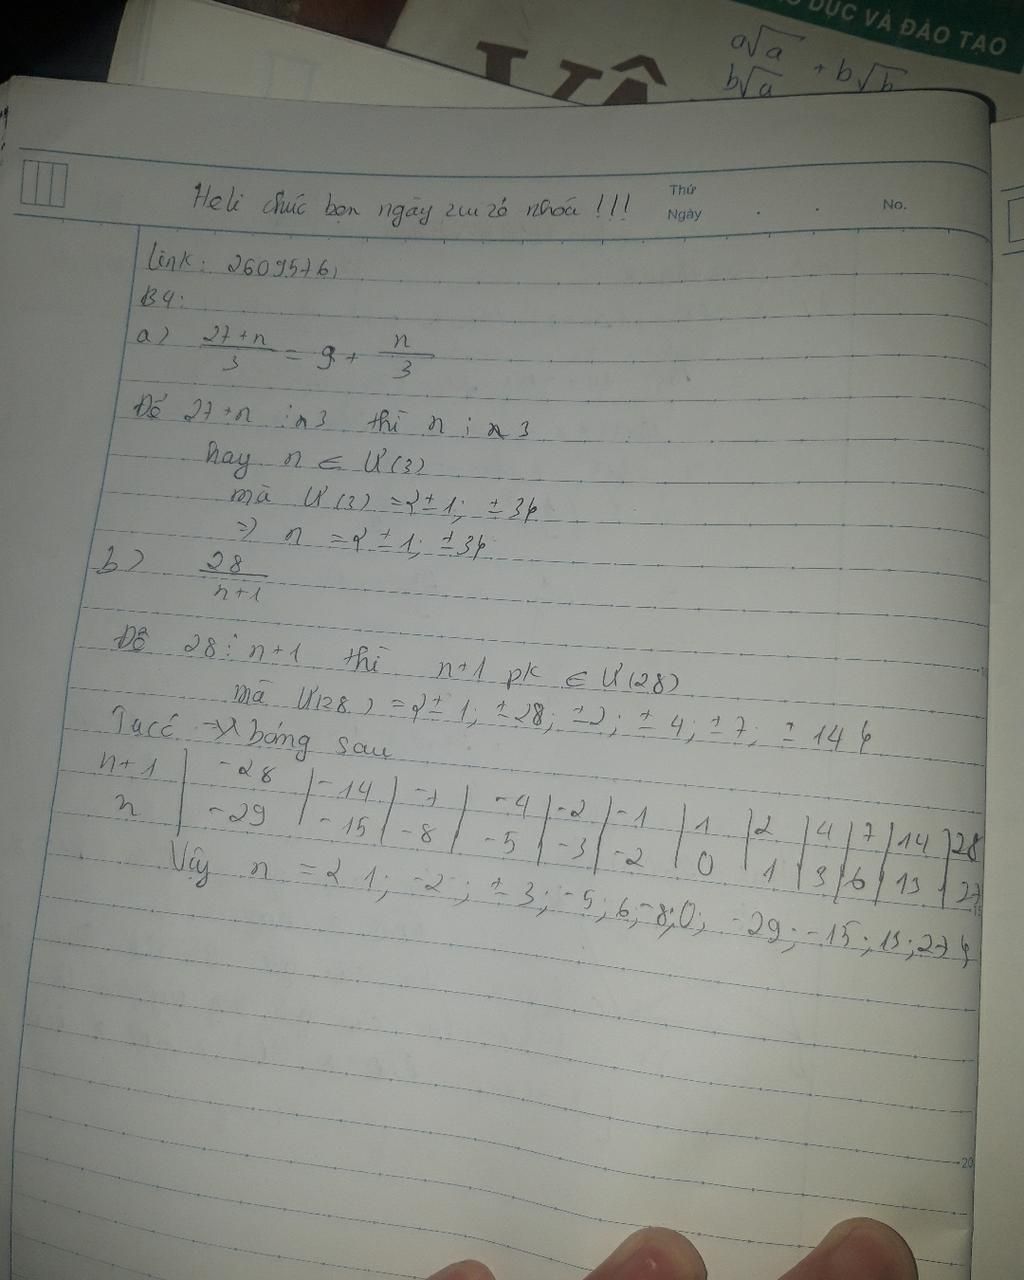 DỤC VÀ ĐÀO TẠO
a√a + b√b
b√a
Heli chúc bạn ngày zui zẻ nhoá !!!
Thứ
Ngày . .
No.
Link: 2609576,
B4:
a) (27+n)/3 = 9 + n/3
Để 27+n ⋮ 3 thì n ⋮ 3
hay n ∈ Ư(3)
mà Ư(3) = {±1; ±3}
=> n = {±1; ±3}
b) 28/(n+1)
Để 28 ⋮ n+1 thì n+1 pk ∈ Ư(28)
mà Ư(28) = {±1; ±28; ±2; ±4; ±7; ±14}
Ta có bảng sau
n+1 | -28 | -14 | -7 | -4 | -2 | -1 | 1 | 2 | 4 | 7 | 14 | 28
n | -29 | -15 | -8 | -5 | -3 | -2 | 0 | 1 | 3 | 6 | 13 | 27
Vậy n = {1; -2; ±3; -5; 6; -8; 0; -29; -15; 13; 27}
20